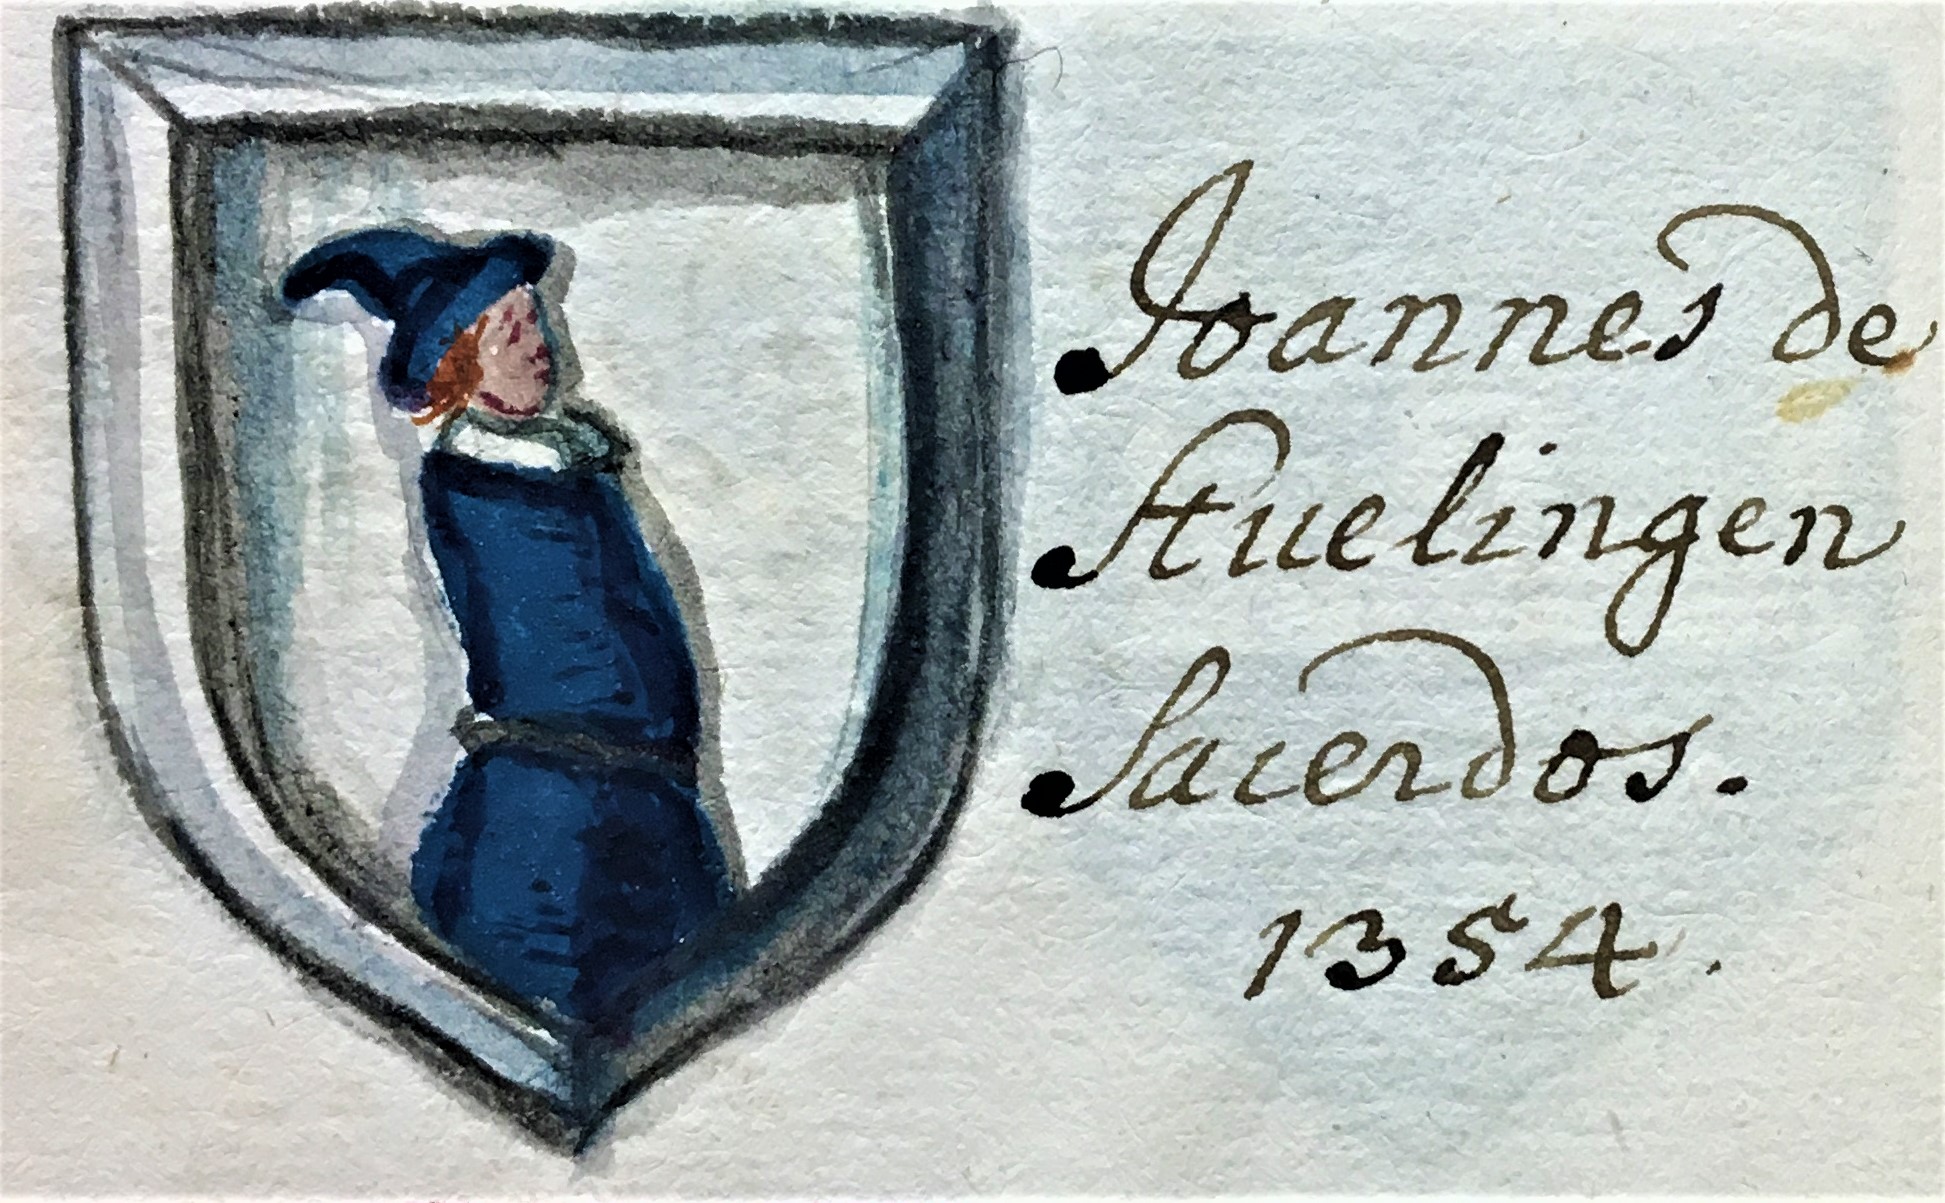 Joannes de
Stuelingen
Sacerdos.
1354.